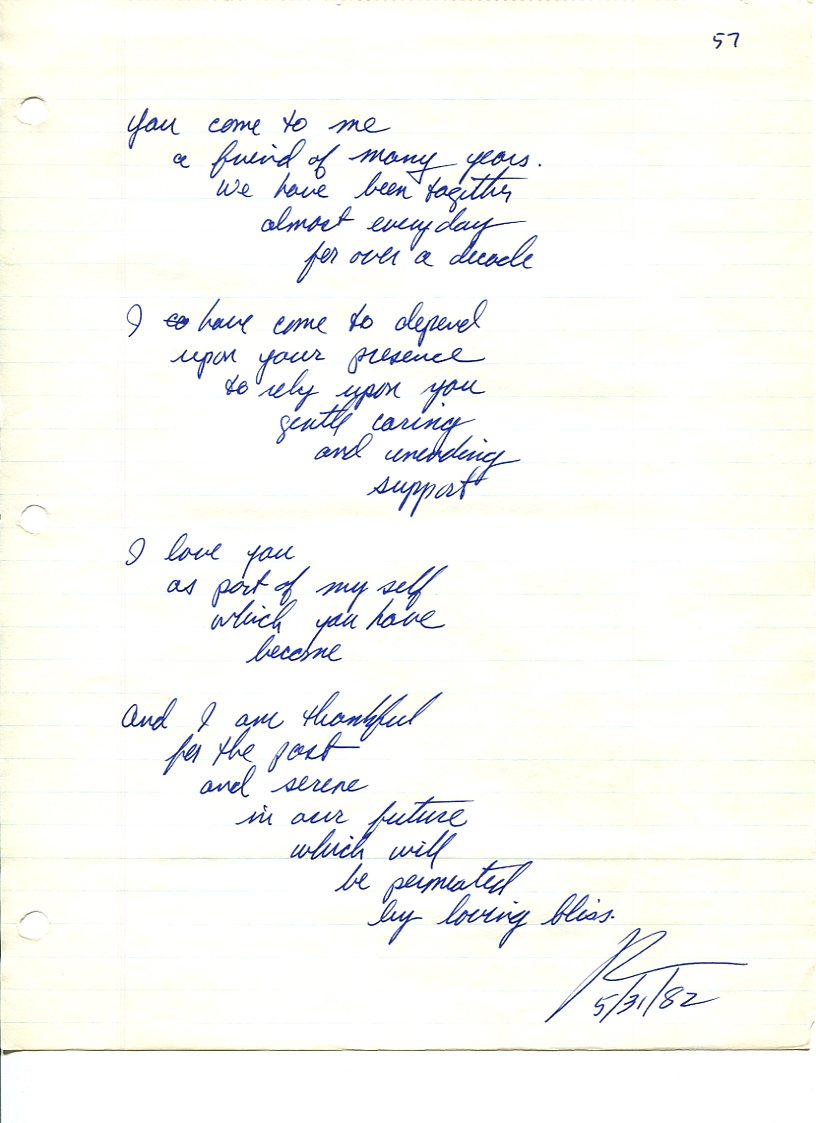 57
You come to me
a friend of many years.
We have been together
almost everyday
for over a decade
I have come to depend
upon your presence
to rely upon you
gentle caring
and unending
support
I love you
as part of my self
which you have
become
And I am thankful
for the past
and serene
in our future
which will
be permeated
by loving bliss.
5/31/82